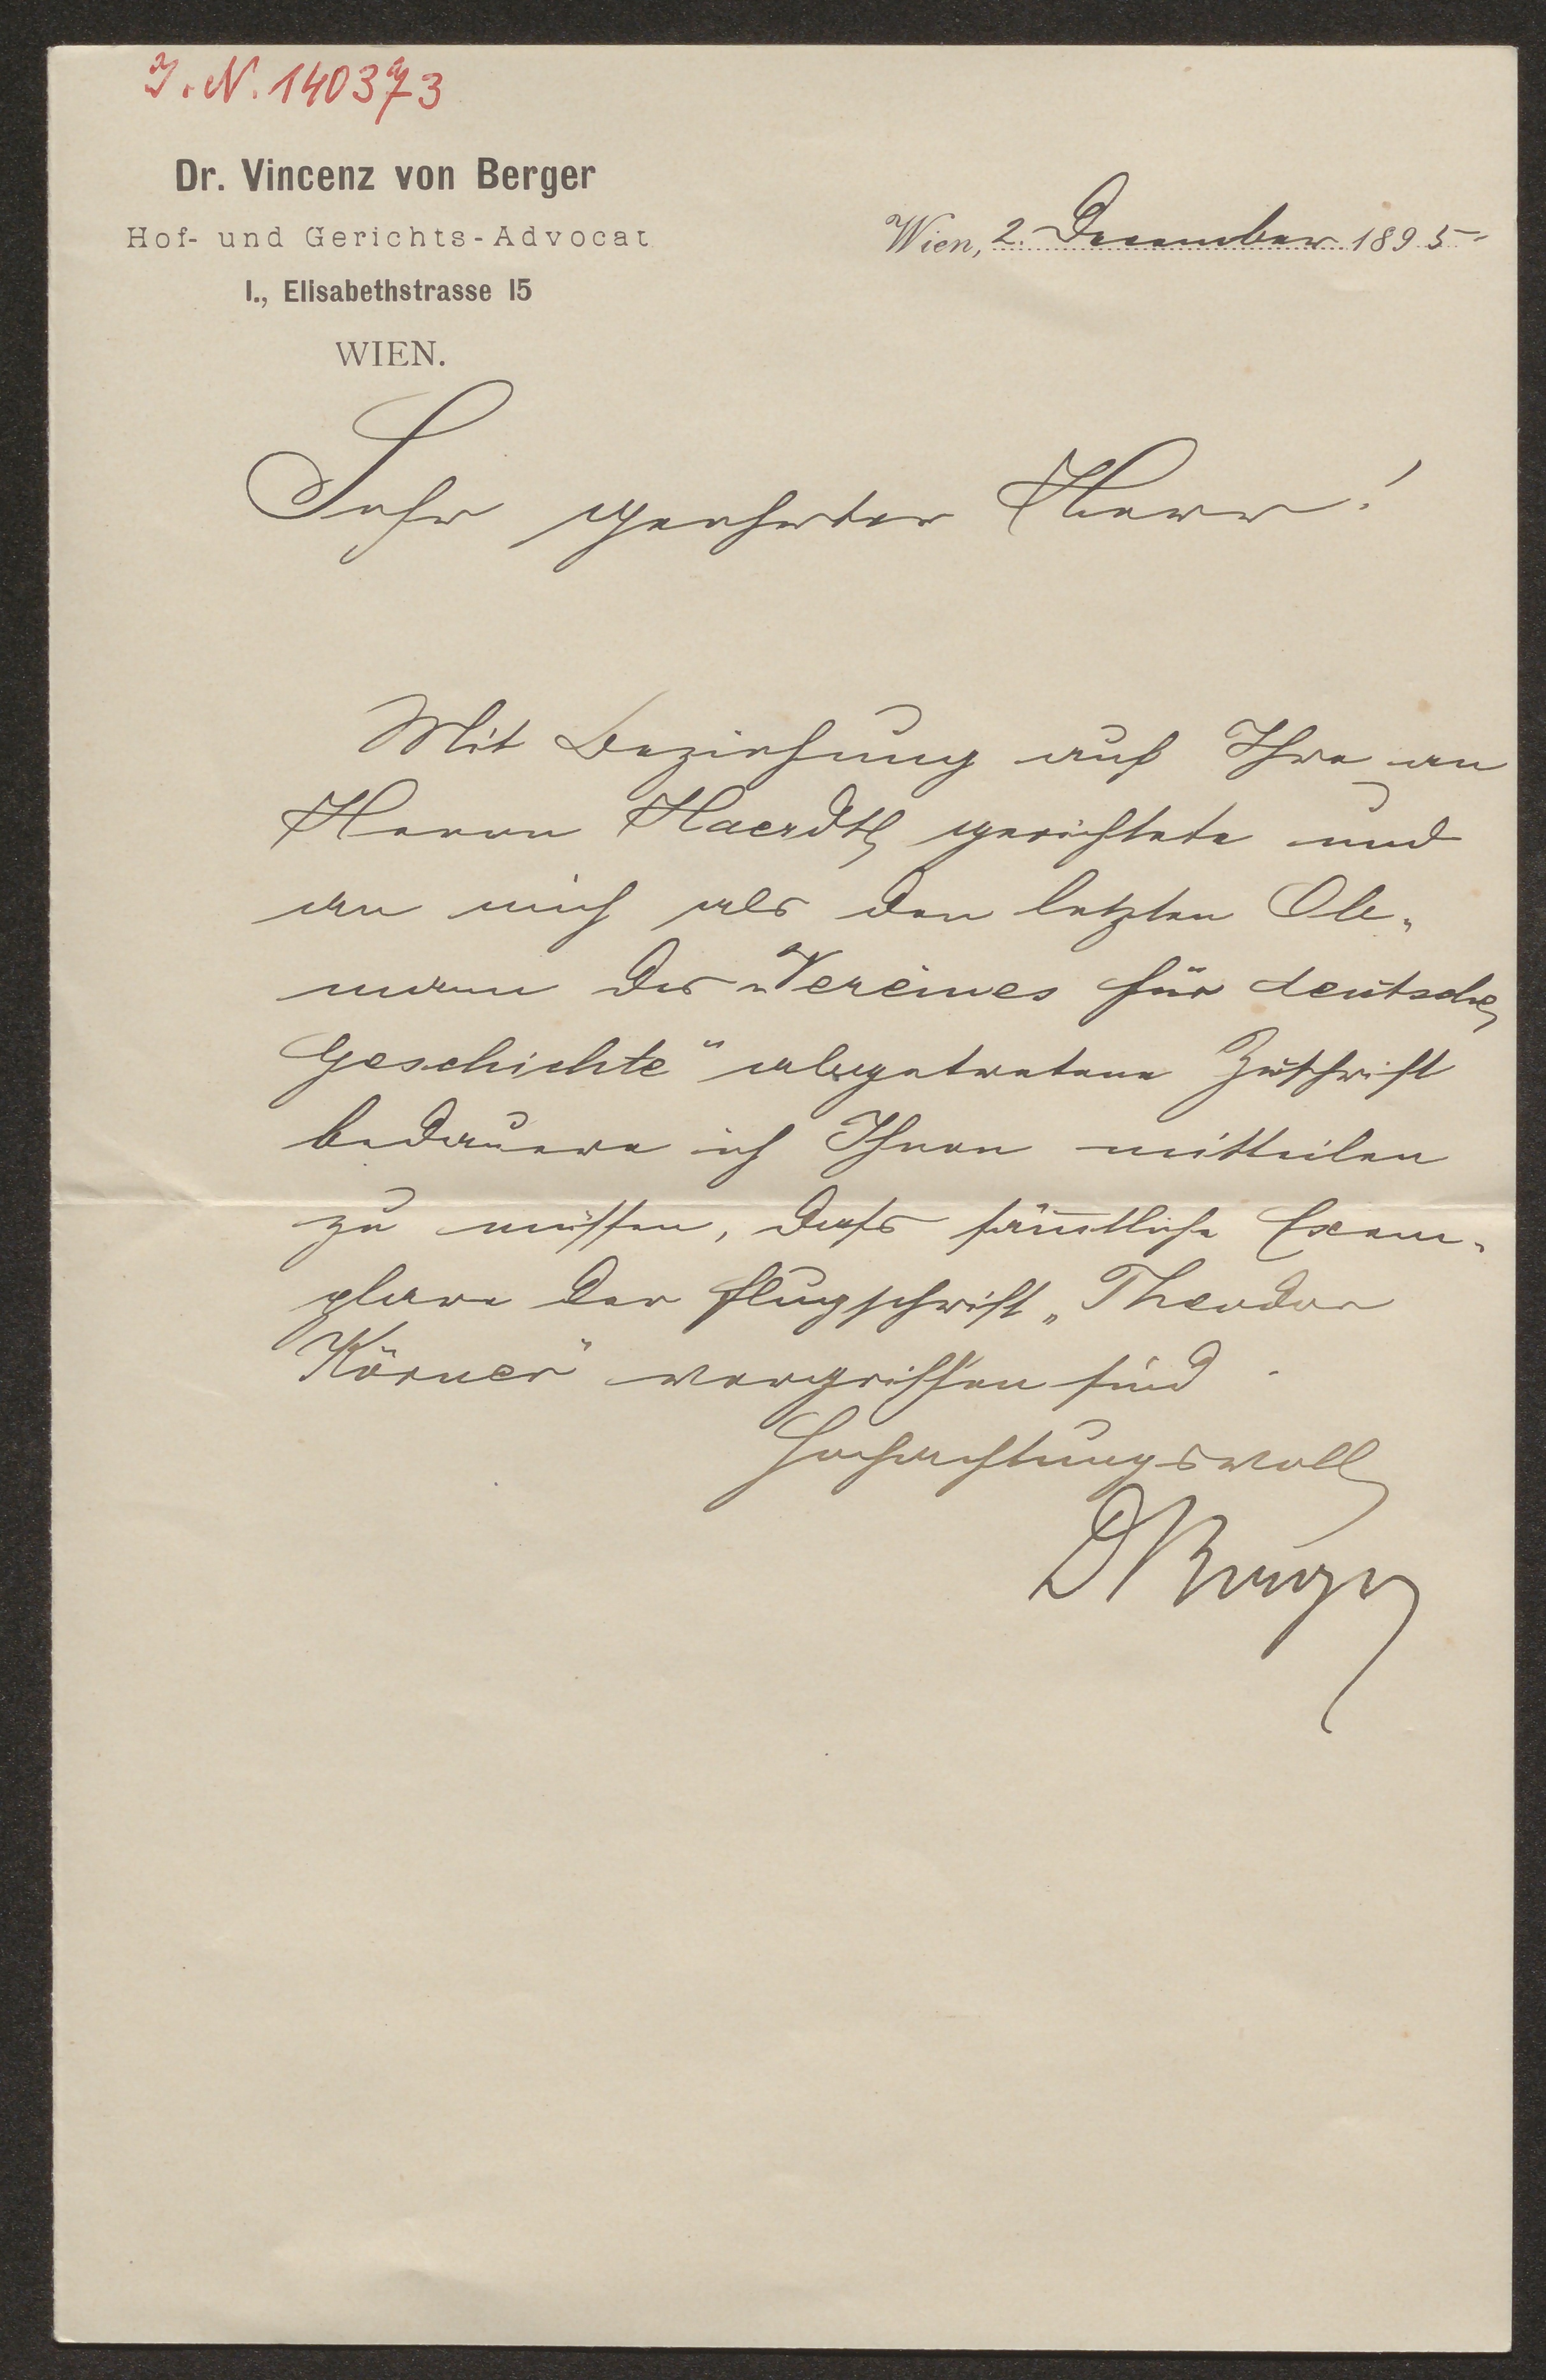 J. N. 140373
Dr. Vincenz von Berger
Hof- und Gerichts-Advocat
I., Elisabethstrasse 15
WIEN.
Wien, 2. December 1895
Sehr geehrter Herr!
Mit Beziehung auf Ihre an
Herrn Haerdtl gerichtete und
an mich als den letzten Ob-
mann des „Vereines für deutsche
Geschichte“ abgetretene Zuschrift
bedauere ich Ihnen mitteilen
zu müssen, dass sämtliche Exem-
plare der Flugschrift „Theodor
Körner“ vergriffen sind.
Hochachtungsvoll
DBerger